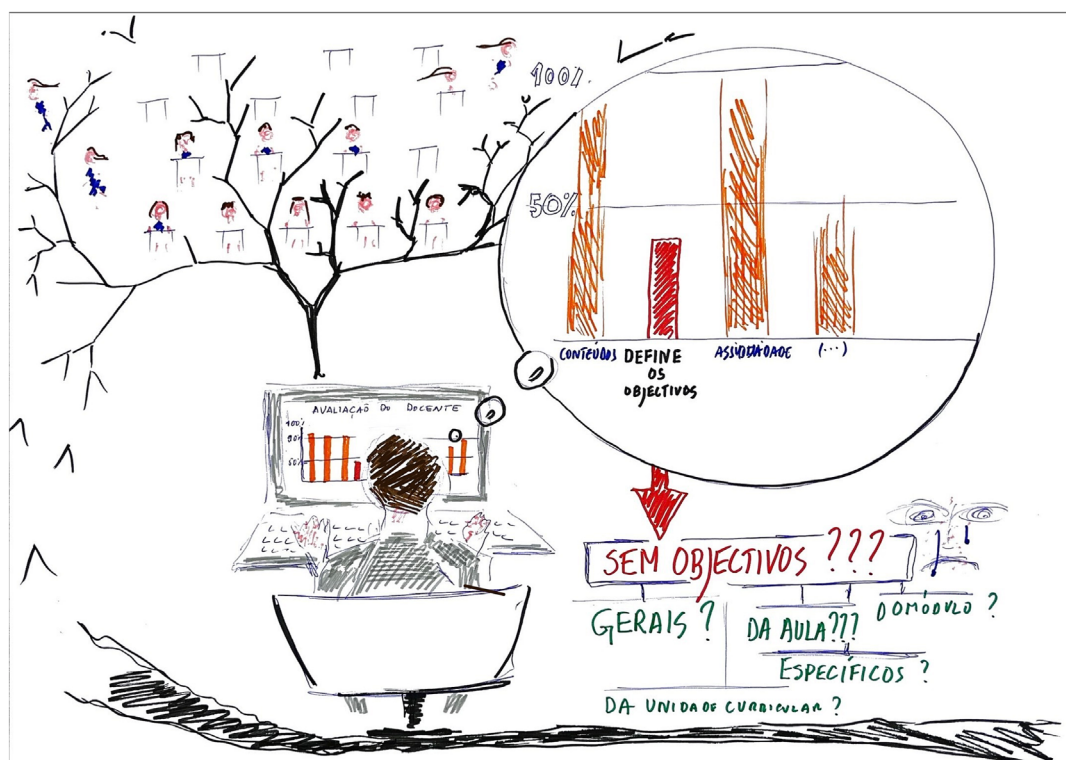 100%
50%
CONTEÚDOS
DEFINE
OS
OBJECTIVOS
ASSIDUIDADE
(...)
AVALIAÇÃO DO DOCENTE
100%
50%
SEM OBJECTIVOS ???
GERAIS ?
DA AULA???
DO MÓDULO ?
ESPECÍFICOS ?
DA UNIDADE CURRICULAR ?